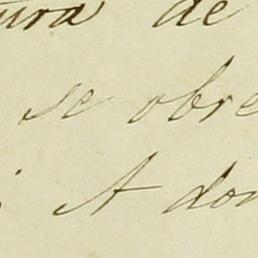 ura de
se obre
A don